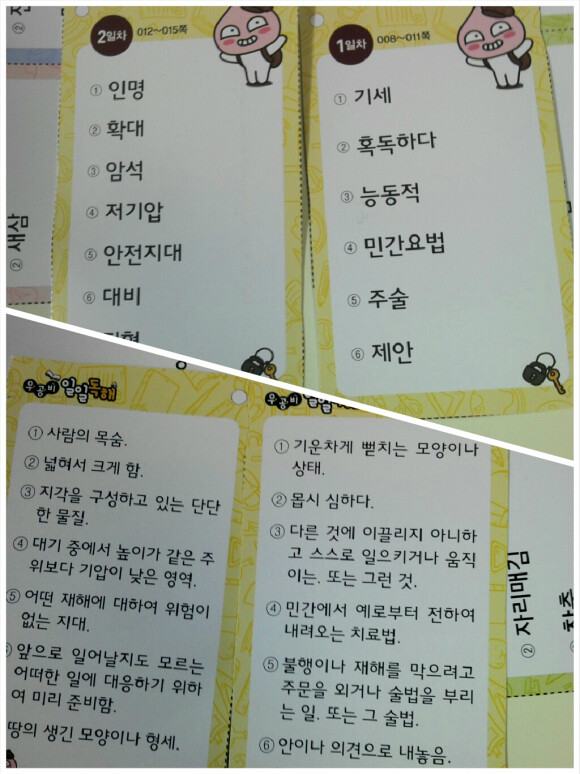 2일차 012~015쪽
① 인명
② 확대
③ 암석
④ 저기압
⑤ 안전지대
⑥ 대비
1일차 008~011쪽
① 기세
② 혹독하다
③ 능동적
④ 민간요법
⑤ 주술
⑥ 제안
② 새삼
우공비 일일독해
① 사람의 목숨.
② 넓혀서 크게 함.
③ 지각을 구성하고 있는 단단
한 물질.
④ 대기 중에서 높이가 같은 주
위보다 기압이 낮은 영역.
⑤ 어떤 재해에 대하여 위험이
없는 지대.
앞으로 일어날지도 모르는
어떠한 일에 대응하기 위하
여 미리 준비함.
땅의 생긴 모양이나 형세.
우공비
① 기운차게 뻗치는 모양이나
상태.
② 몹시 심하다.
③ 다른 것에 이끌리지 아니하
고 스스로 일으키거나 움직
이는. 또는 그런 것.
④ 민간에서 예로부터 전하여
내려오는 치료법.
⑤ 불행이나 재해를 막으려고
주문을 외거나 술법을 부리
는 일. 또는 그 술법.
⑥ 안이나 의견으로 내놓음.
자리매김
②